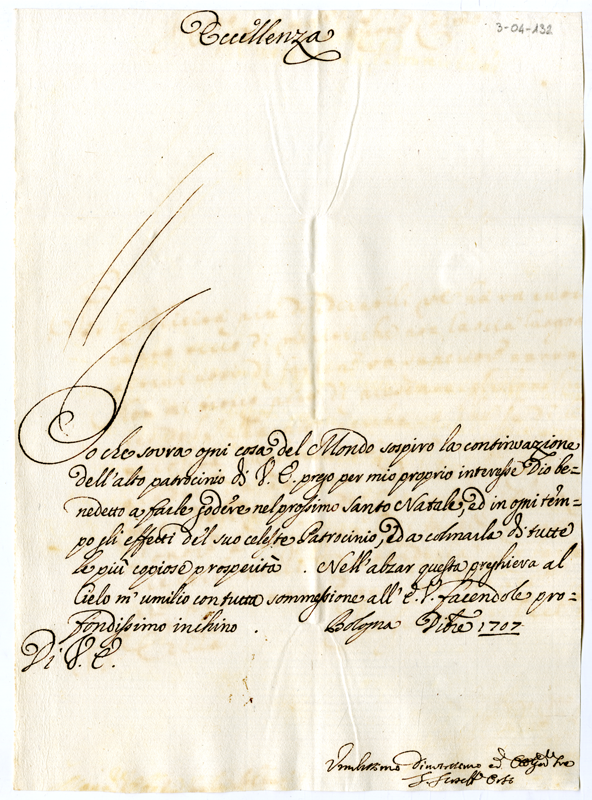 Eccellenza
3-04-132
Io che sovra ogni cosa del Mondo sospiro la continvazione
dell'alto patrocinio di V. E. prego per mio proprio interesse Dio be=
nedetto a farle godere nel prossimo santo Natale, ed in ogni tem=
po gli effetti del suo celeste Patrocinio, ed a colmarla di tutte
le più copiose prosperità. Nell'alzar questa preghiera al
Cielo m'umilio con tutta sommessione all'E. V. facendole pro=
fondissimo inchino. Bologna Dibre 1707
Di V. E.
Umilissimo Divotissimo ed